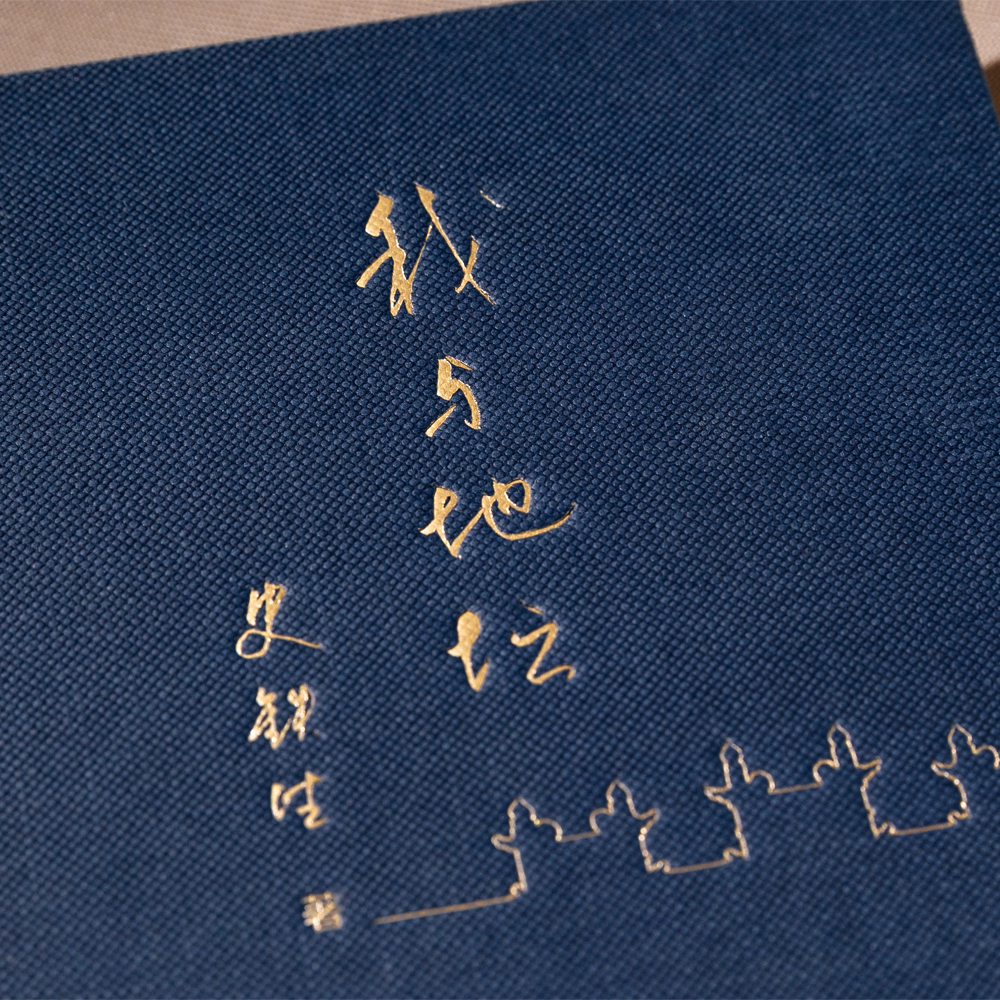 我与地坛
史铁生
著